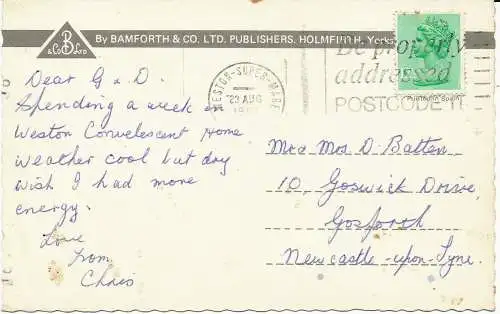 B
& Co LTD
By BAMFORTH & CO. LTD. PUBLISHERS. HOLMFIRTH, Yorks
WESTON-SUPER-MARE
23 AUG
Be properly
addressed
POSTCODE IT
Printed in Spain
Dear G & D.
Spending a week in
Weston Convelescent Home
weather cool but dry
wish I had more
energy.
Love
from
Chris
Mr & Mrs D Batten
10, Goswick Drive,
Gosforth
Newcastle-upon-Tyne.